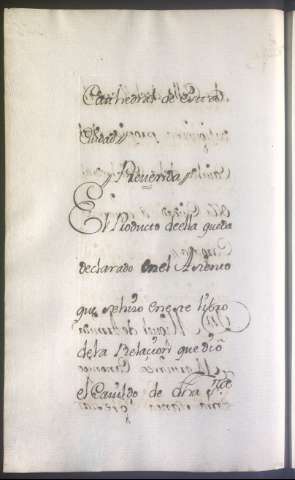 Cathedral de esta
Ciudad//
//Recuerida//
El Producto de ella queda
declarado en el Asiento
que se hizo en este libro
de la Relacion que dió
el Cavildo de dha Ygª